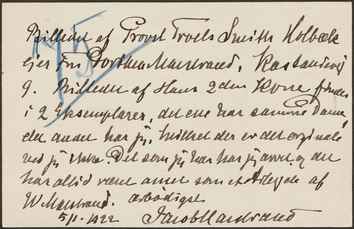 Billedet af Provst Troels Smith Holbæk
ejer Frk Dorthea Marstrand, Kastanievej
9. Billedet af Hans 2den Kone findes
i 2 Exemplarer, det ene har samme Dame
det andet har jeg, hvilket der er det originale
ved jeg ikke. Det som jeg har har jeg arvet og det
har altid været anset som ægte af
W. Marstrand. ærbødigst
5/1 - 1922 Jacob Marstrand